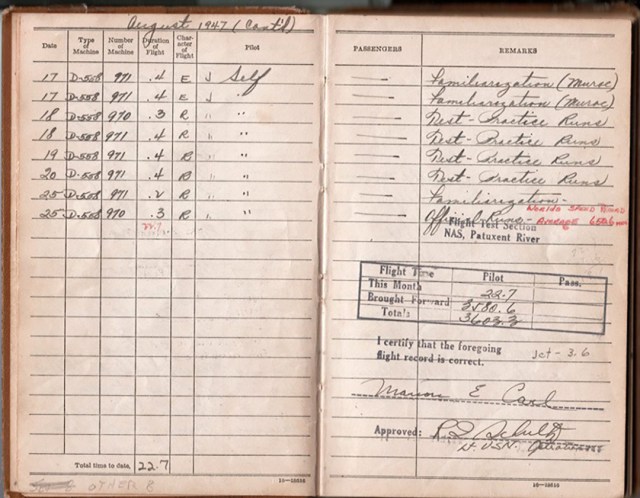 August 1947 (Cont'd)
Date Type of Machine Number of Machine Duration of Flight Character of Flight Pilot PASSENGERS REMARKS
17 D-558 971 .4 E J Self — Familiarization (Muroc)
17 D-558 971 .4 E J " — Familiarization (Muroc)
18 D-558 970 .3 R " " — Test - Practice Runs
18 D-558 971 .4 R " " — Test - Practice Runs
19 D-558 971 .4 R " " — Test - Practice Runs
20 D-558 971 .4 R " " — Test - Practice Runs
25 D-558 971 .2 R " " — Familiarization -
25 D-558 970 .3 R " " — Official Runs - WORLD SPEED RECORD
AVERAGE 650.6
22.7
Flight Test Section
NAS, Patuxent River
Flight Time Pilot Pass.
This Month 22.7
Brought Forward 3580.6
Totals 3603.3
I certify that the foregoing
flight record is correct.
Jet - 3.6
Marion E Carl
Approved: Schultz
Lt. USN.
Total time to date, 22.7